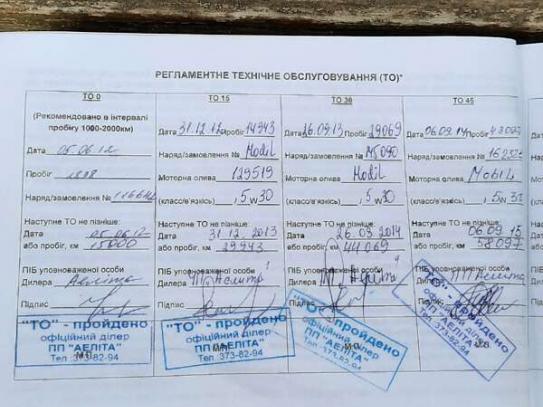 РЕГЛАМЕНТНЕ ТЕХНІЧНЕ ОБСЛУГОВУВАННЯ (ТО)*
ТО 0
(Рекомендовано в інтервалі
пробігу 1000-2000км)
Дата 05.06.12
Пробіг
Наряд/замовлення №
Наступне ТО не пізніше:
Дата
або пробіг, км 15000
ПІБ уповноваженої особи
Дилера Аеліта
Підпис
"ТО" - пройдено
офіційний ділер
ПП "АЕЛІТА"
Тел. 373-82-94
ТО 15
Дата 31.12.12 Пробіг 14943
Наряд/замовлення № Mobil
Моторна олива 129519
(клас/в'язкість) , 5w30
Наступне ТО не пізніше:
Дата 31.12.2013
або пробіг, км 29943
ПІБ уповноваженої особи
Дилера ПП Аеліта
Підпис
"ТО" - пройдено
офіційний ділер
ПП "АЕЛІТА"
Тел. 373-82-94
ТО 30
Дата Пробіг 29069
Наряд/замовлення №
Моторна олива Mobil
(клас/в'язкість) , 5w30
Наступне ТО не пізніше:
Дата 26.03.2014
або пробіг, км 44069
ПІБ уповноваженої особи
Дилера ПП Аеліта
Підпис
пройдено
офіційний ділер
ПП "АЕЛІТА"
Тел. 373-82-94
ТО 45
Дата 06.09.14 Пробіг
Наряд/замовлення №
Моторна олива Mobil
(клас/в'язкість)
Наступне ТО не пізніше:
Дата 06.09.15
або пробіг, км 58097
ПІБ уповноваженої особи
Дилера ПП Аеліта
Підпис
"ТО" - пройдено
офіційний ділер
ПП "АЕЛІТА"
Тел. 373-82-94